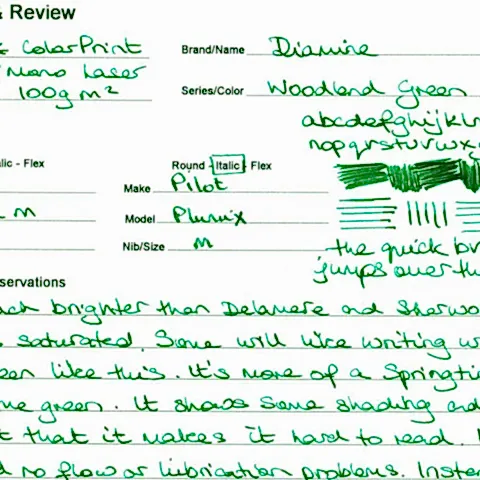 & Review
& ColorPrint
Brand/Name Diamine
Mono Laser
100g m²
Series/Color Woodland Green
abcdefghijklm
nopqrstuvwx
lic - Flex
Round - Italic - Flex
Make Pilot
m
Model Plumix
Nib/Size m
the quick br
jumps over th
servations
ch brighter than Delamere and Sherwo
saturated. Some will like writing w
een like this. It's more of a Springti
me green. It shows some shading and
t that it makes it hard to read.
d no flow or lubrication problems. Inste